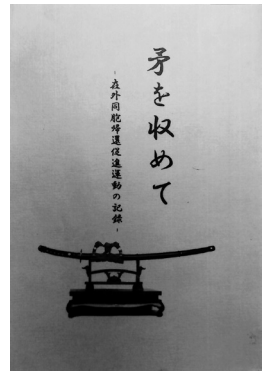 矛を収めて
-在外同胞帰還促進運動の記録-